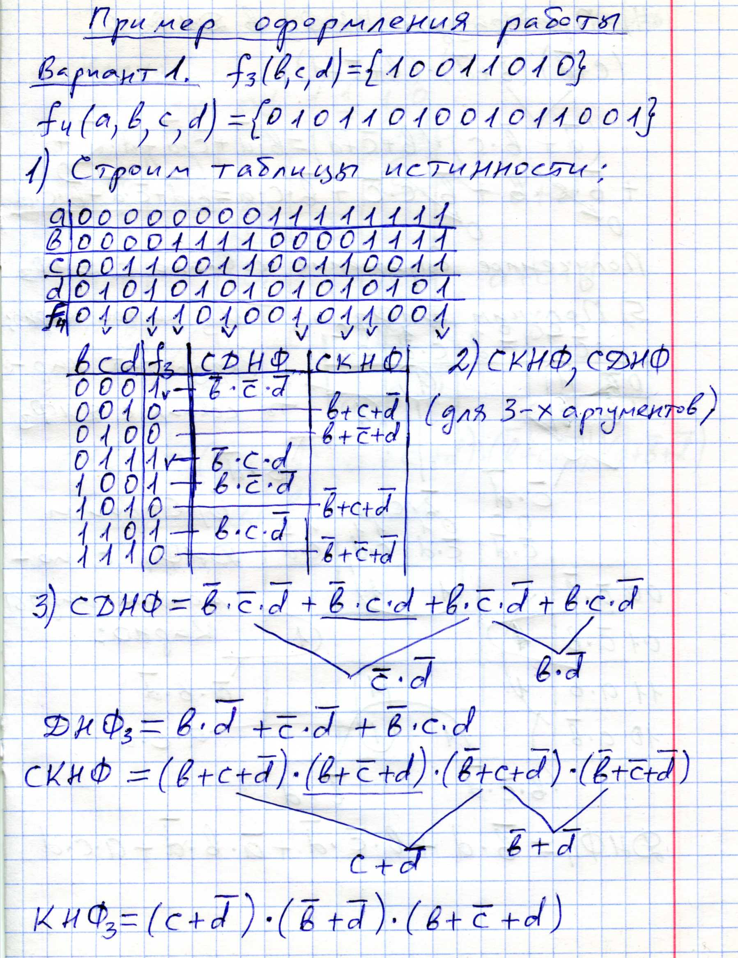 Пример оформления работы
Вариант 1. f₃(b,c,d)={10011010}
f₄(a,b,c,d)={0101101001011001}
1) Строим таблицы истинности:
a|0000000011111111
b|0000111100001111
c|0011001100110011
d|0101010101010101
f₄|0101101001011001
b c d|f₃|СДНФ|СКНФ 2) СКНФ, СДНФ
0 0 0|1 b̅·c̅·d̅
0 0 1|0 b+c+d̅ (для 3-х аргументов)
0 1 0|0 b+c̅+d
0 1 1|1 b̅·c·d
1 0 0|1 b·c̅·d̅
1 0 1|0 b̅+c+d̅
1 1 0|1 b·c·d̅
1 1 1|0 b̅+c̅+d̅
3) СДНФ = b̅·c̅·d̅ + b̅·c·d + b·c̅·d̅ + b·c·d̅
c̅·d̅ b·d̅
ДНФ₃ = b·d̅ + c̅·d̅ + b̅·c·d
СКНФ = (b+c+d̅)·(b+c̅+d)·(b̅+c+d̅)·(b̅+c̅+d̅)
c+d̅ b̅+d̅
КНФ₃ = (c+d̅)·(b̅+d̅)·(b+c̅+d)